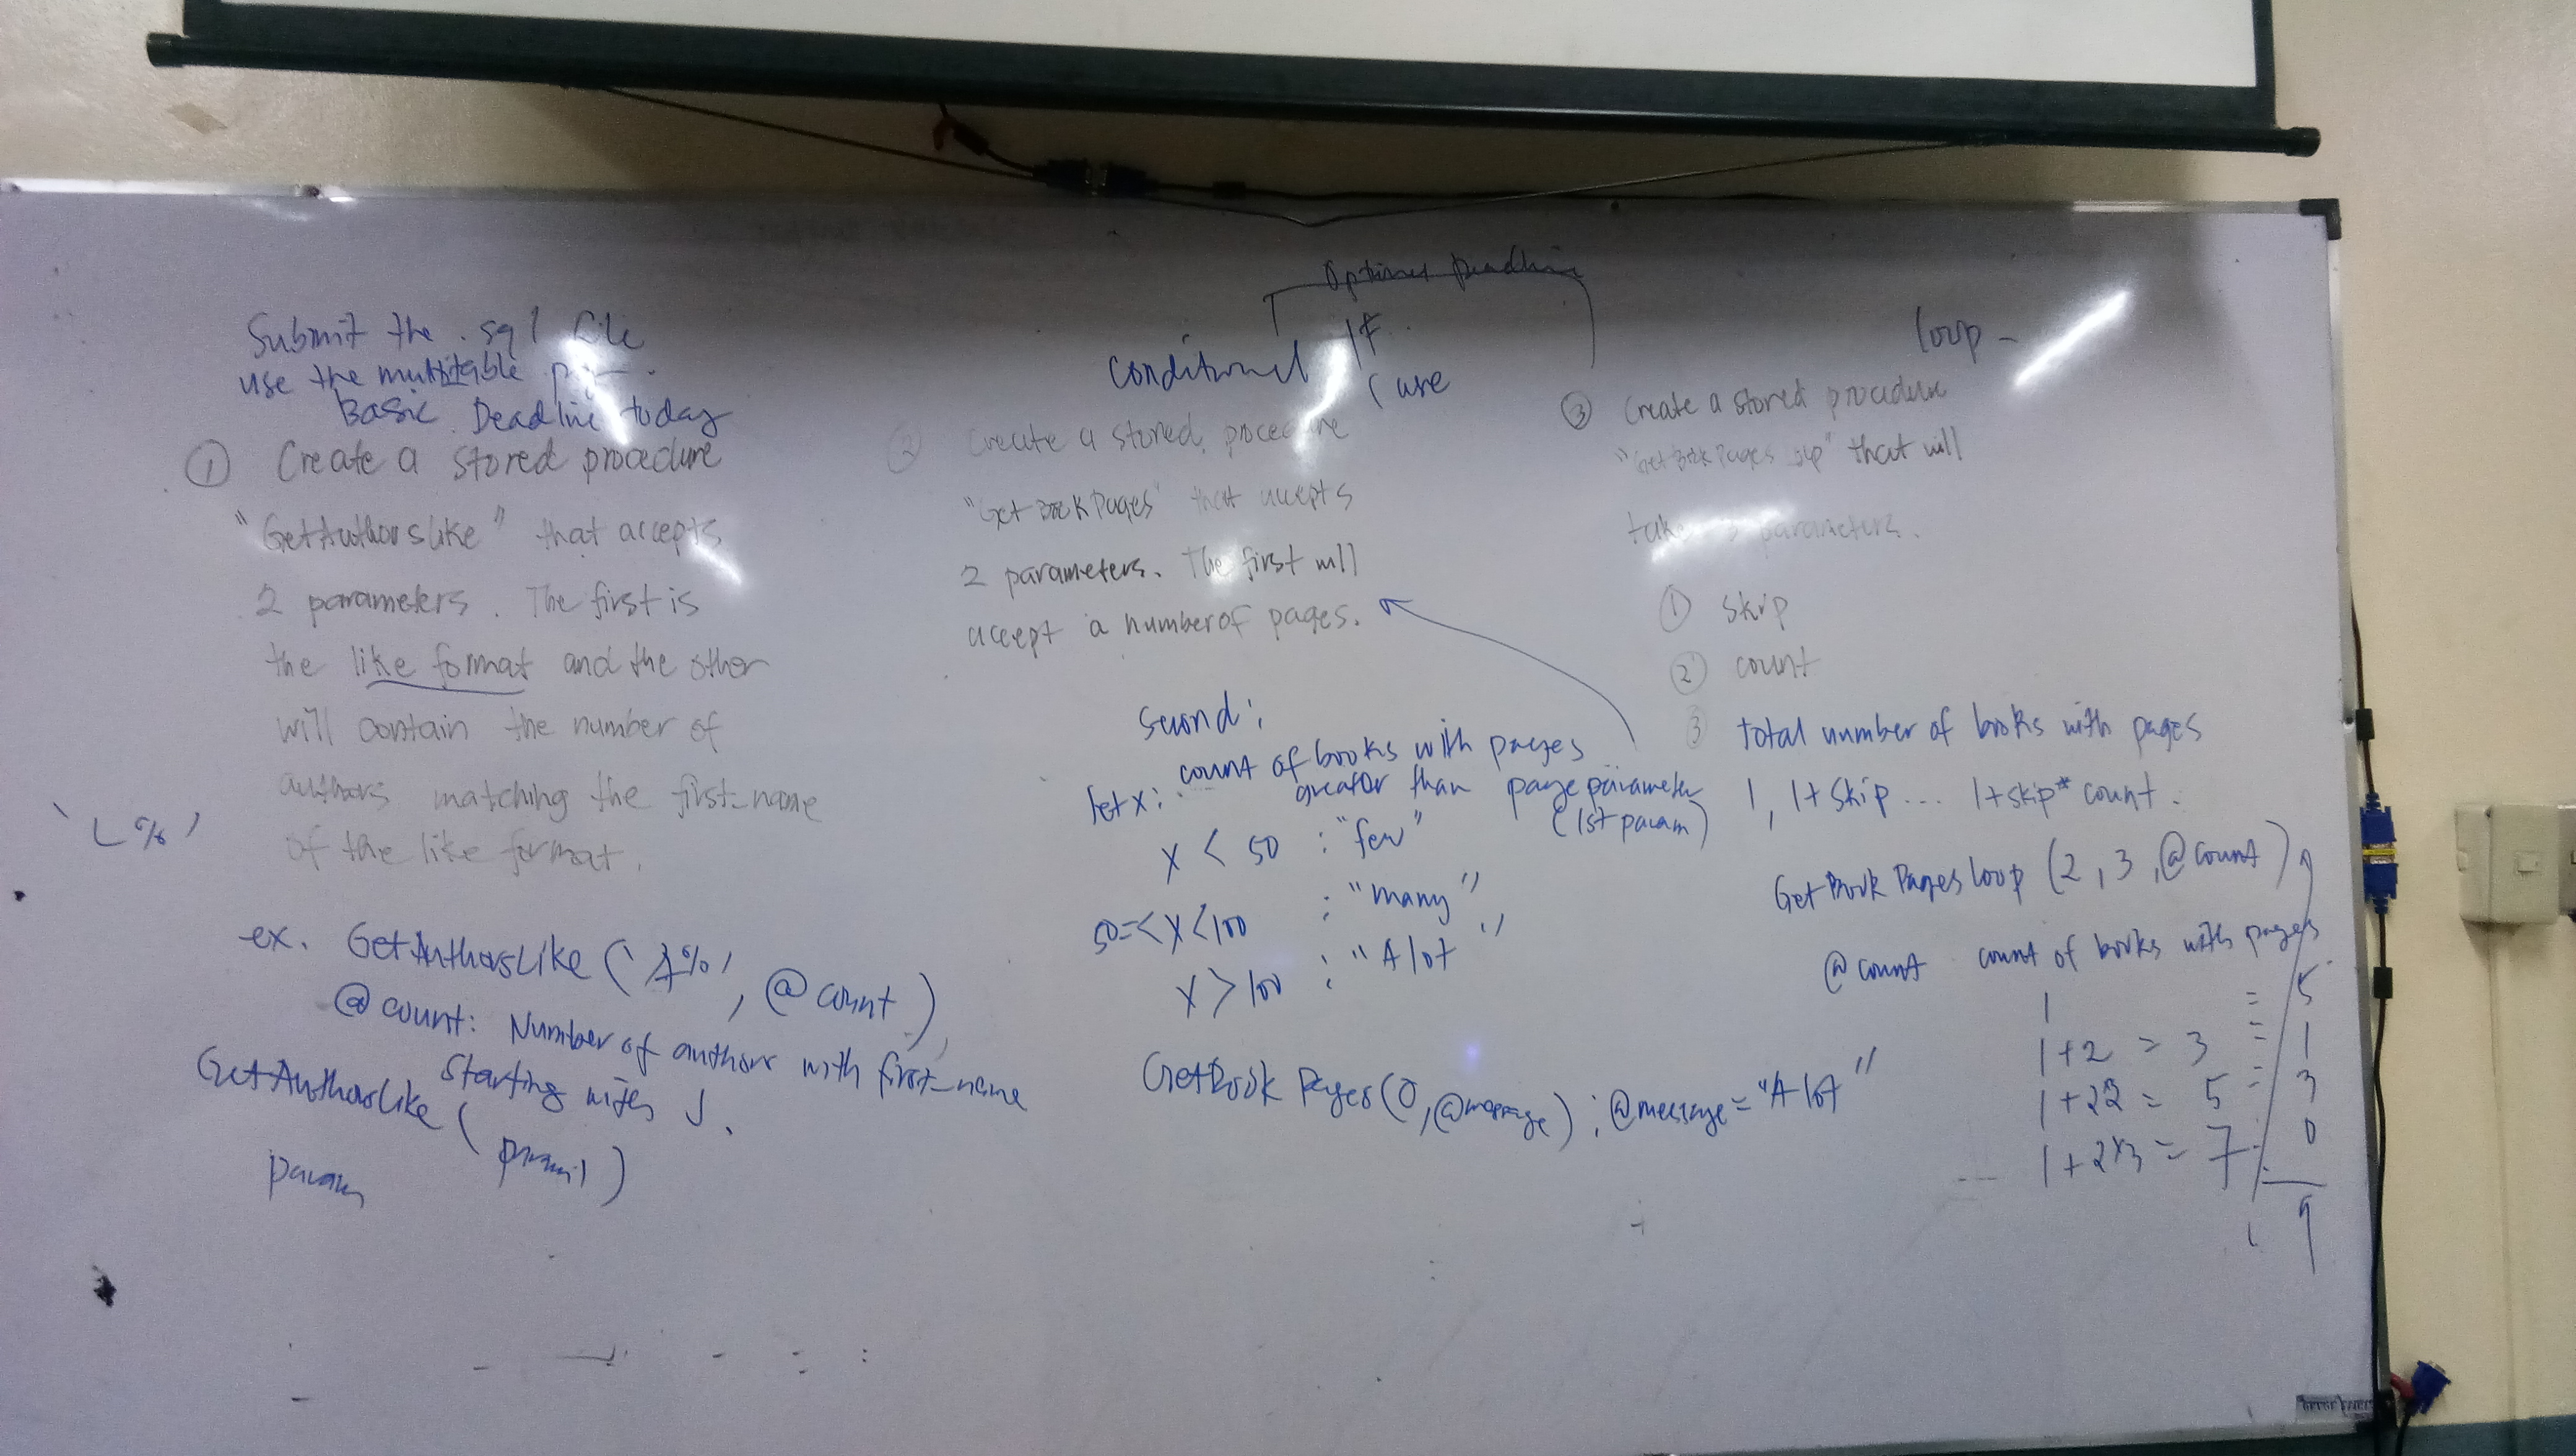 Submit the .sql file
use the multitable
Basic Deadline today
① Create a stored procedure
"GetAuthorsLike" that accepts
2 parameters. The first is
the like format and the other
will contain the number of
authors matching the first_name
of the like format.
'L%'
ex. GetAuthorsLike ('J%', @count)
@count: Number of authors with first_name
starting with J.
GetAuthorsLike (
param
Optional Deadline
Conditional IF
Case
② Create a stored procedure
"GetBookPages" that accepts
2 parameters. The first will
accept a number of pages.
second:
count of books with pages
greater than page parameter
(1st param)
let x:
x < 50 : "few"
50=<x<100 : "many"
x > 100 : "A lot"
GetBookPages(0, @message) ; @message = "A lot"
loop -
③ Create a stored procedure
"GetBookPages loop" that will
take 3 parameters.
① skip
② count
③ total number of books with pages
1, 1+skip... 1+skip*count.
GetBookPagesloop (2, 3, @count)
@count count of books with pages
1 = 5
1+2 = 3 = 1
1+22 = 5 = 3
1+2*3 = 7 0
9